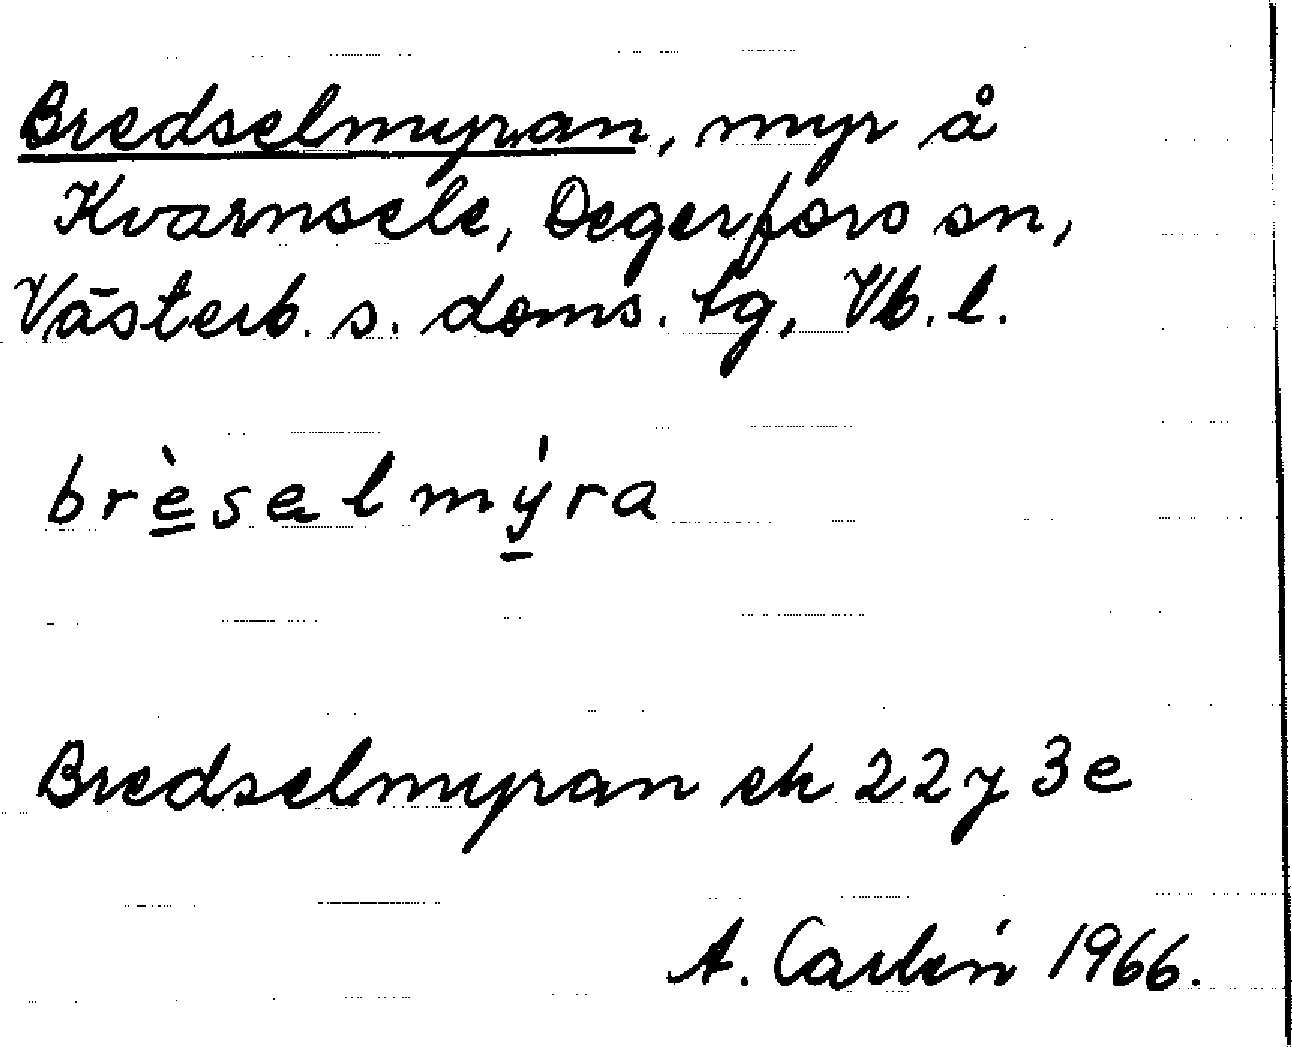 Bredselmyran, myr å
Kvarnsele, Degerfors sn,
Västerb. s. doms. tg, Vb. l.
brèsₑlmýra
Bredselmyran ek 22 y 3 e
A. Carlén 1966.